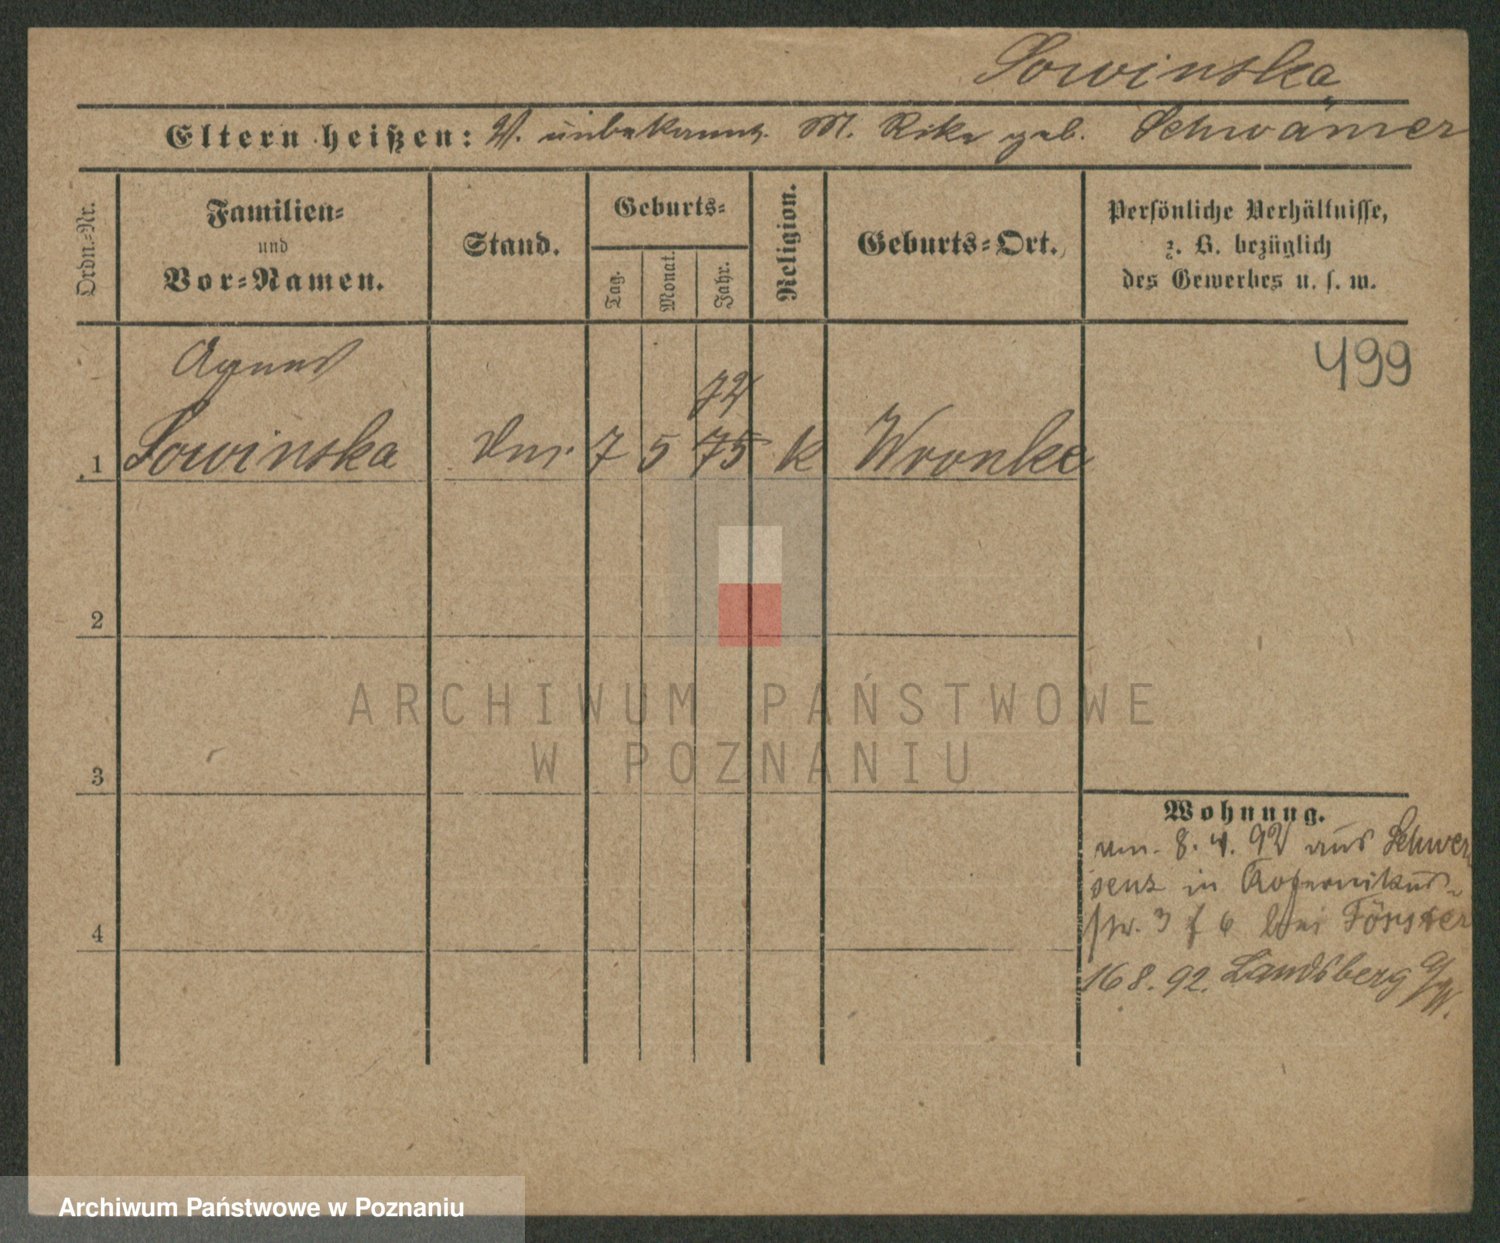 Sowinska
Eltern heißen: V. unbekannt. M. Rike geb. Schwamer
Ordn.-Nr.
Familien-
und
Vor-Namen.
Stand.
Geburts-
Tag.
Monat.
Jahr.
Religion.
Geburts-Ort.
Persönliche Verhältnisse,
z. B. bezüglich
des Gewerbes u. s. w.
499
Agnes
72
1 Sowinska 7 5 75 k Wronke
2
3
4
ARCHIWUM PAŃSTWOWE
W POZNANIU
Wohnung.
8. 4. 92 aus Schwer
senz in Kopernikus-
str. 3 f 6 bei Förster
16 8. 92. Landsberg a/W.
Archiwum Państwowe w Poznaniu